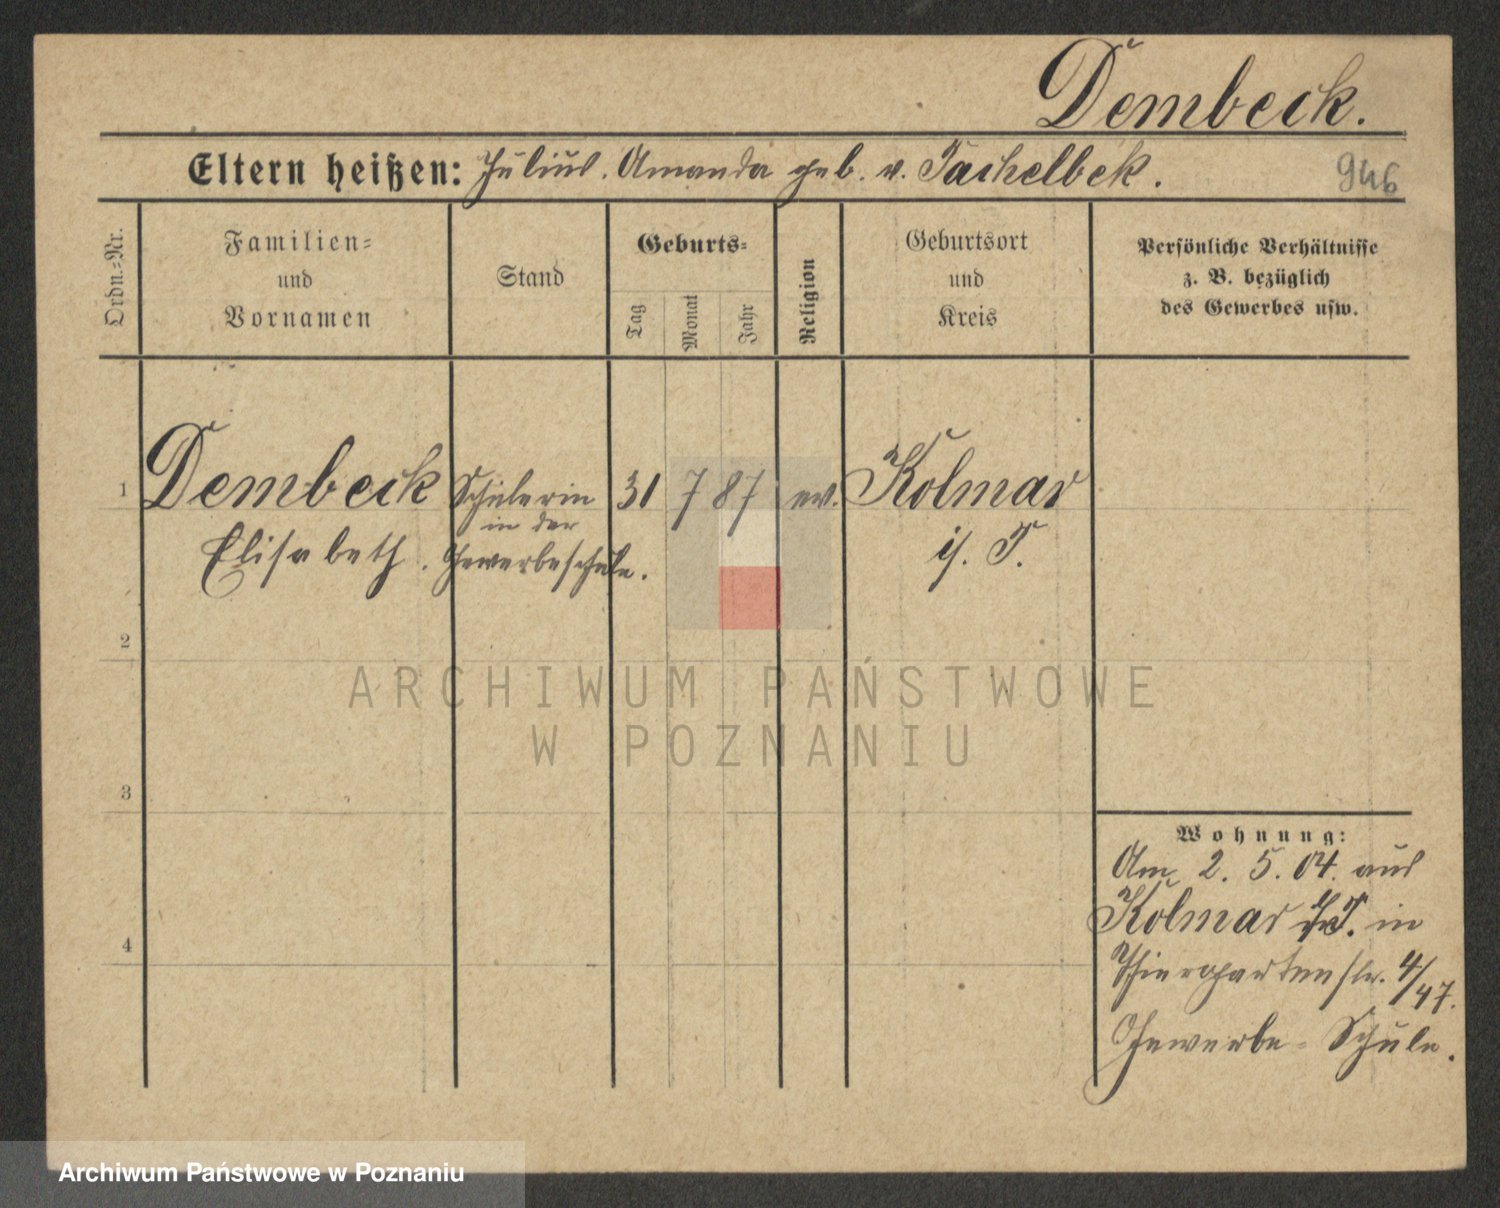 Dembeck.
Eltern heißen: Julius. Amanda geb. v. Tachelbek.
946
Ordn.-Nr.
Familien-
und
Vornamen
Stand
Geburts-
Tag
Monat
Jahr
Religion
Geburtsort
und
Kreis
Persönliche Verhältnisse
z. B. bezüglich
des Gewerbes usw.
1 Dembeck Schülerin 31 7 87 ev. Kolmar
in der
Elisabeth. Gewerbeschule. i/. P.
2
3
4
Wohnung:
Am 2. 5. 04. aus
Kolmar i/P. in
Thiergartenstr. 4/47.
Gewerbe-Schule.
ARCHIWUM PAŃSTWOWE
W POZNANIU
Archiwum Państwowe w Poznaniu